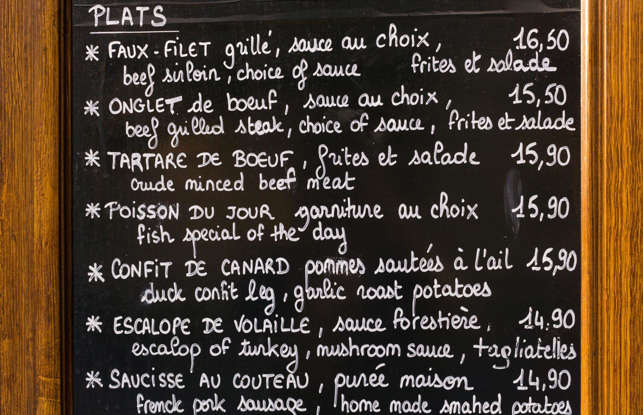 PLATS
* FAUX-FILET grillé, sauce au choix, 16,50
beef sirloin, choice of sauce frites et salade
* ONGLET de boeuf, sauce au choix, 15,50
beef grilled steak, choice of sauce, frites et salade
* TARTARE DE BOEUF, frites et salade 15,90
crude minced beef meat
* POISSON DU JOUR garniture au choix 15,90
fish special of the day
* CONFIT DE CANARD pommes sautées à l'ail 15,90
duck confit leg, garlic roast potatoes
* ESCALOPE DE VOLAILLE, sauce forestière, 14,90
escalop of turkey, mushroom sauce, tagliatelles
* SAUCISSE AU COUTEAU, purée maison 14,90
french pork sausage, home made smahed potatoes